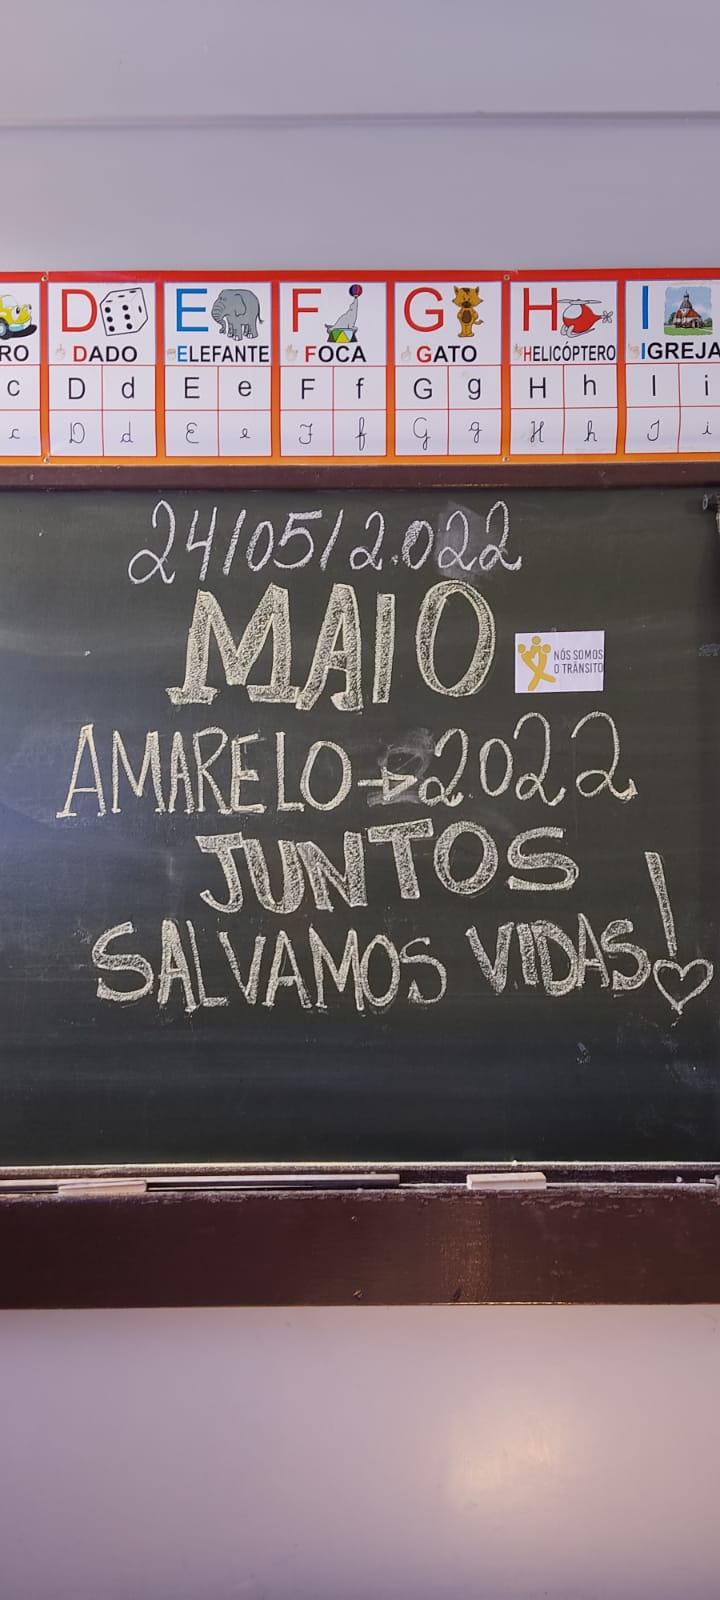 D E F G H I
RO DADO ELEFANTE FOCA GATO HELICÓPTERO IGREJA
c D d E e F f G g H h I i
c D d E e F f G g H h I i
24/05/2.022
MAIO
NÓS SOMOS
O TRÂNSITO
AMARELO → 2.022
JUNTOS
SALVAMOS VIDAS!